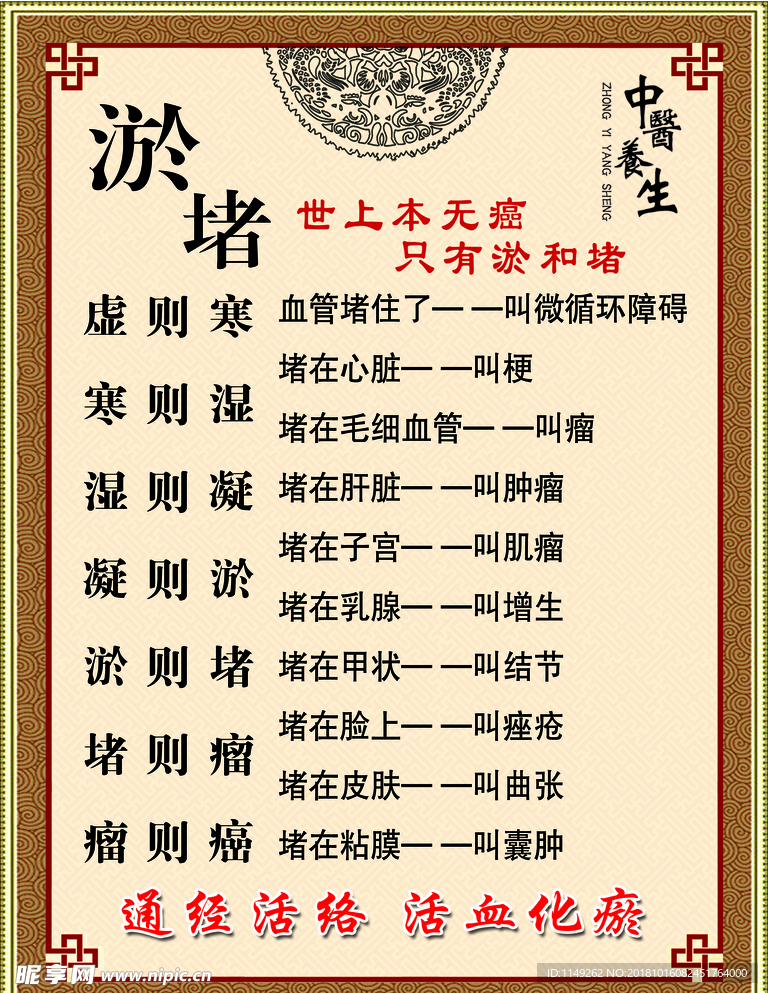 淤堵
中醫養生
ZHONG YI YANG SHENG
世上本无癌
只有淤和堵
虚则寒
寒则湿
湿则凝
凝则淤
淤则堵
堵则瘤
瘤则癌
血管堵住了— —叫微循环障碍
堵在心脏— —叫梗
堵在毛细血管— —叫瘤
堵在肝脏— —叫肿瘤
堵在子宫— —叫肌瘤
堵在乳腺— —叫增生
堵在甲状— —叫结节
堵在脸上— —叫痤疮
堵在皮肤— —叫曲张
堵在粘膜— —叫囊肿
通经活络 活血化瘀
昵享网 www.nipic.cn
ID:1149262 NO:20181016082451764000